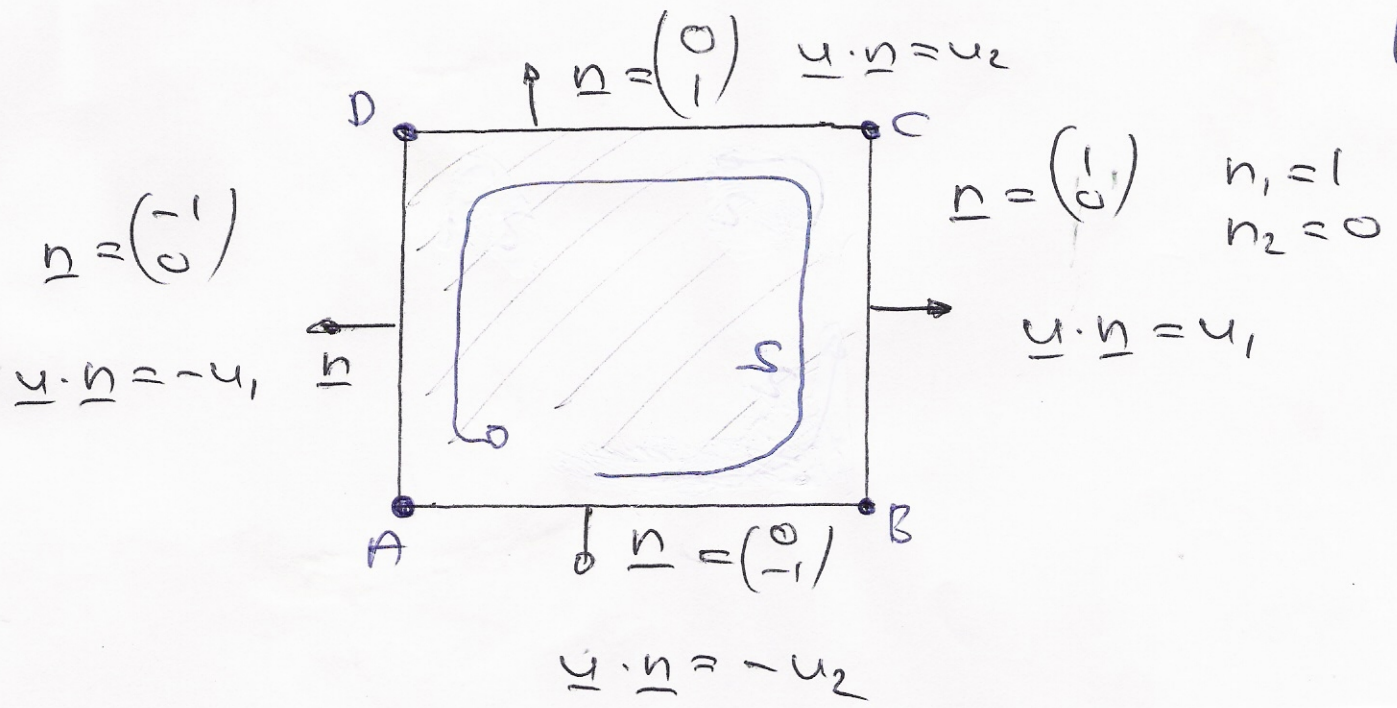 n = (0 1) u · n = u₂
D
C
n = (1 0) n₁ = 1
n₂ = 0
n = (-1 0)
u · n = u₁
n
u · n = -u₁
S
A
B
n = (0 -1)
u · n = -u₂